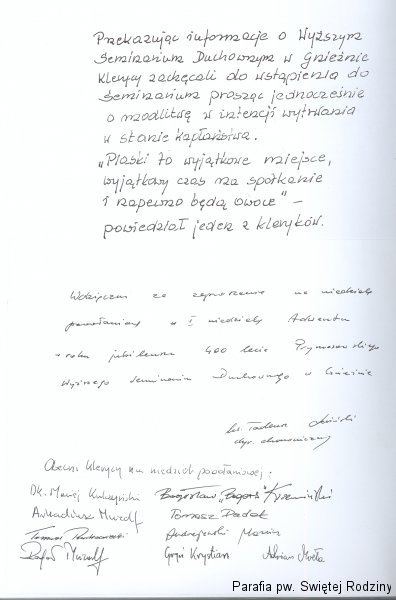 Przekazując informacje o Wyższym
Seminarium Duchownym w Gnieźnie
Klerycy zachęcali do wstąpienia do
Seminarium prosząc jednocześnie
o modlitwę w intencji wytrwania
w stanie kapłaństwa.
„Piaski to wyjątkowe miejsce,
wyjątkowy czas na spotkanie
i napewno będą owoce” –
powiedział jeden z kleryków.
Wdzięczni za zaproszenie na niedzielę
powołaniową w I niedzielę Adwentu
w roku jubileuszu 400 lecia Prymasowskiego
Wyższego Seminarium Duchownego w Gnieźnie
ks. Tadeusz
dyr. ekonomiczny
Obecni klerycy na niedzieli powołaniowej:
Dk. Maciej Kulczyński
Arkadiusz Murzof
Tomasz Dadok
Andrzejewski Marcin
Rafał
Krystian
Adrian
Parafia pw. Swiętej Rodziny